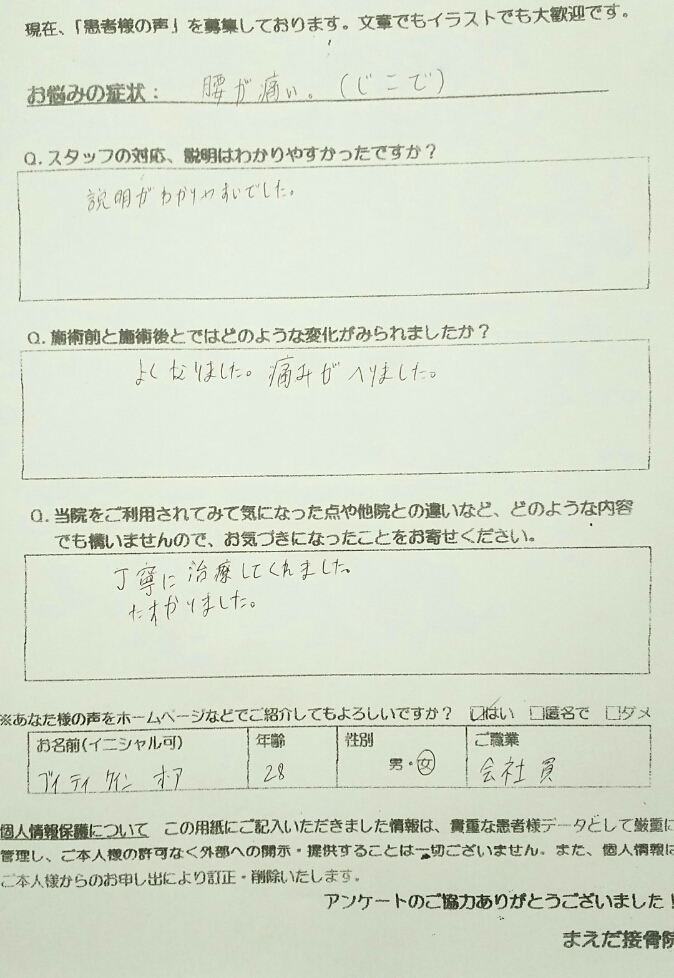 現在、「患者様の声」を募集しております。文章でもイラストでも大歓迎です。
お悩みの症状: 腰が痛い。(じこで)
Q.スタッフの対応、説明はわかりやすかったですか?
説明がわかりやすいでした。
Q.施術前と施術後とではどのような変化がみられましたか?
よくなりました。痛みがへりました。
Q.当院をご利用されてみて気になった点や他院との違いなど、どのような内容
でも構いませんので、お気づきになったことをお寄せください。
丁寧に治療してくれました。
たすかりました。
※あなた様の声をホームページなどでご紹介してもよろしいですか? ☑はい □匿名で □ダメ
お名前(イニシャル可) 年齢 性別 ご職業
ブイ ティ クイン ホア 28 男・女 会社員
個人情報保護について この用紙にご記入いただきました情報は、貴重な患者様データとして厳重に
管理し、ご本人様の許可なく外部への開示・提供することは一切ございません。また、個人情報は
ご本人様からのお申し出により訂正・削除いたします。
アンケートのご協力ありがとうございました!
まえだ接骨院